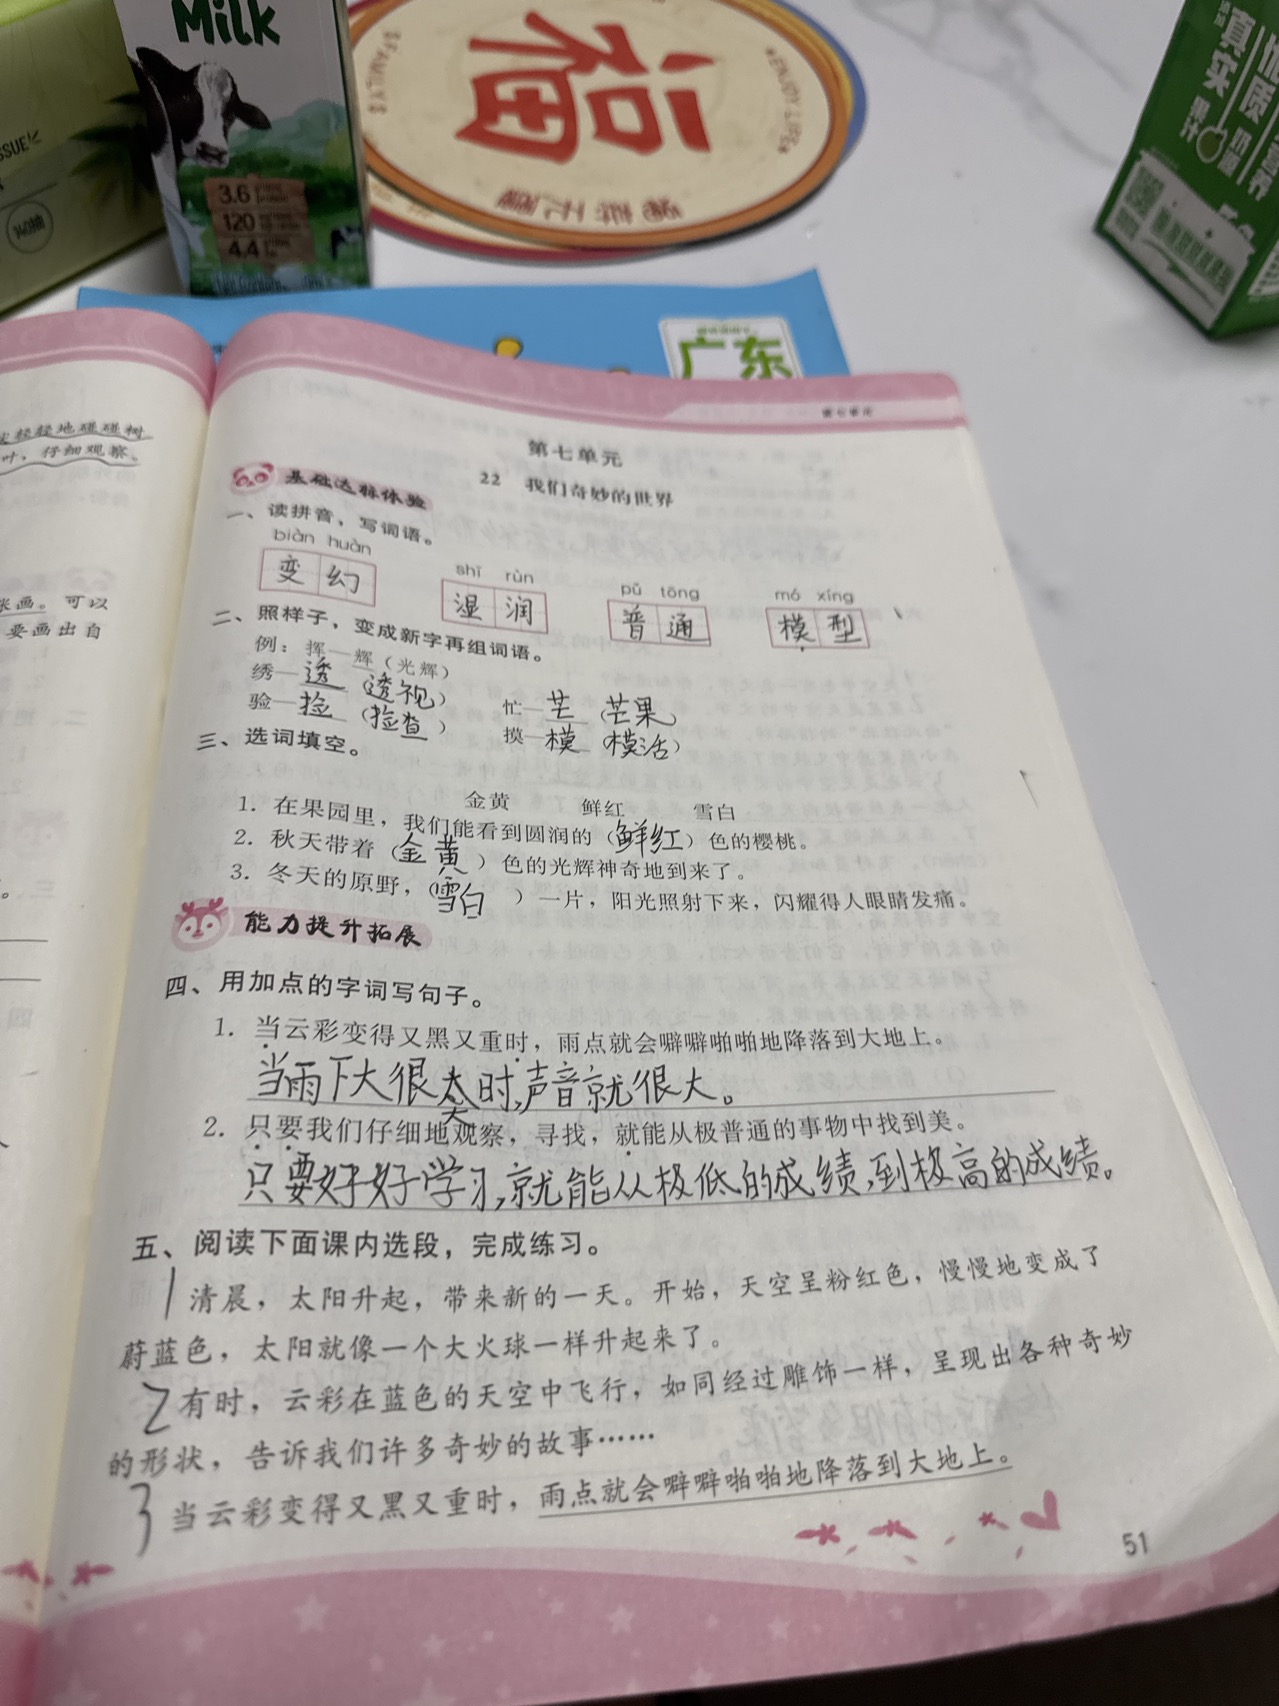 Milk
3.6
120
4.4
SSUE
140抽
福
ENJOY LIFE
FAMILY
真实
果汁
广东
火轻轻地碰碰树
叶，仔细观察。
张画。可以
要画出自
第七单元
第七单元
22 我们奇妙的世界
基础达标体验
一、读拼音，写词语。
biàn huàn shī rùn pǔ tōng mó xíng
变幻 湿润 普通 模型
二、照样子，变成新字再组词语。
例：挥—辉（光辉）
绣—透（透视） 忙—芒（芒果）
验—捡（捡查） 摸—模（模活）
三、选词填空。
金黄 鲜红 雪白
1. 在果园里，我们能看到圆润的（鲜红）色的樱桃。
2. 秋天带着（金黄）色的光辉神奇地到来了。
3. 冬天的原野，（雪白）一片，阳光照射下来，闪耀得人眼睛发痛。
能力提升拓展
四、用加点的字词写句子。
1. 当云彩变得又黑又重时，雨点就会噼噼啪啪地降落到大地上。
当雨下大很大时，声音就很大。
2. 只要我们仔细地观察，寻找，就能从极普通的事物中找到美。
只要好好学习，就能从极低的成绩，到极高的成绩。
五、阅读下面课内选段，完成练习。
1 清晨，太阳升起，带来新的一天。开始，天空呈粉红色，慢慢地变成了
蔚蓝色，太阳就像一个大火球一样升起来了。
2 有时，云彩在蓝色的天空中飞行，如同经过雕饰一样，呈现出各种奇妙
的形状，告诉我们许多奇妙的故事……
3 当云彩变得又黑又重时，雨点就会噼噼啪啪地降落到大地上。
51